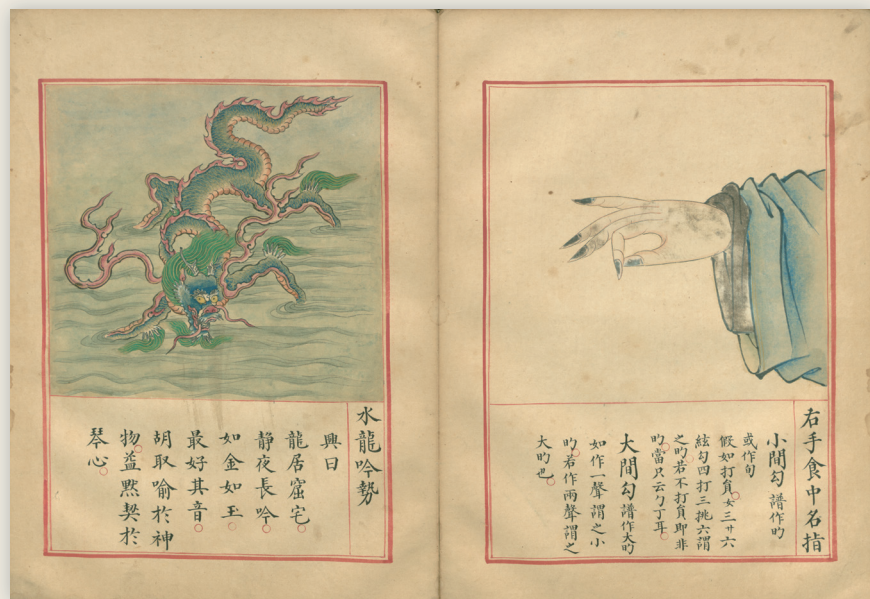 右手食中名指
小間勾 譜作㫁
或作句
假如打負女三廿六
絃勾四打三挑六謂
之㫁若不打負即非
㫁當只云勹丁耳
大間勾 譜作大㫁
如作一聲謂之小
㫁若作兩聲謂之
大㫁也
水龍吟勢
興曰
龍居窟宅
靜夜長吟
如金如玉
最好其音
胡取喻於神
物益黙契於
琴心